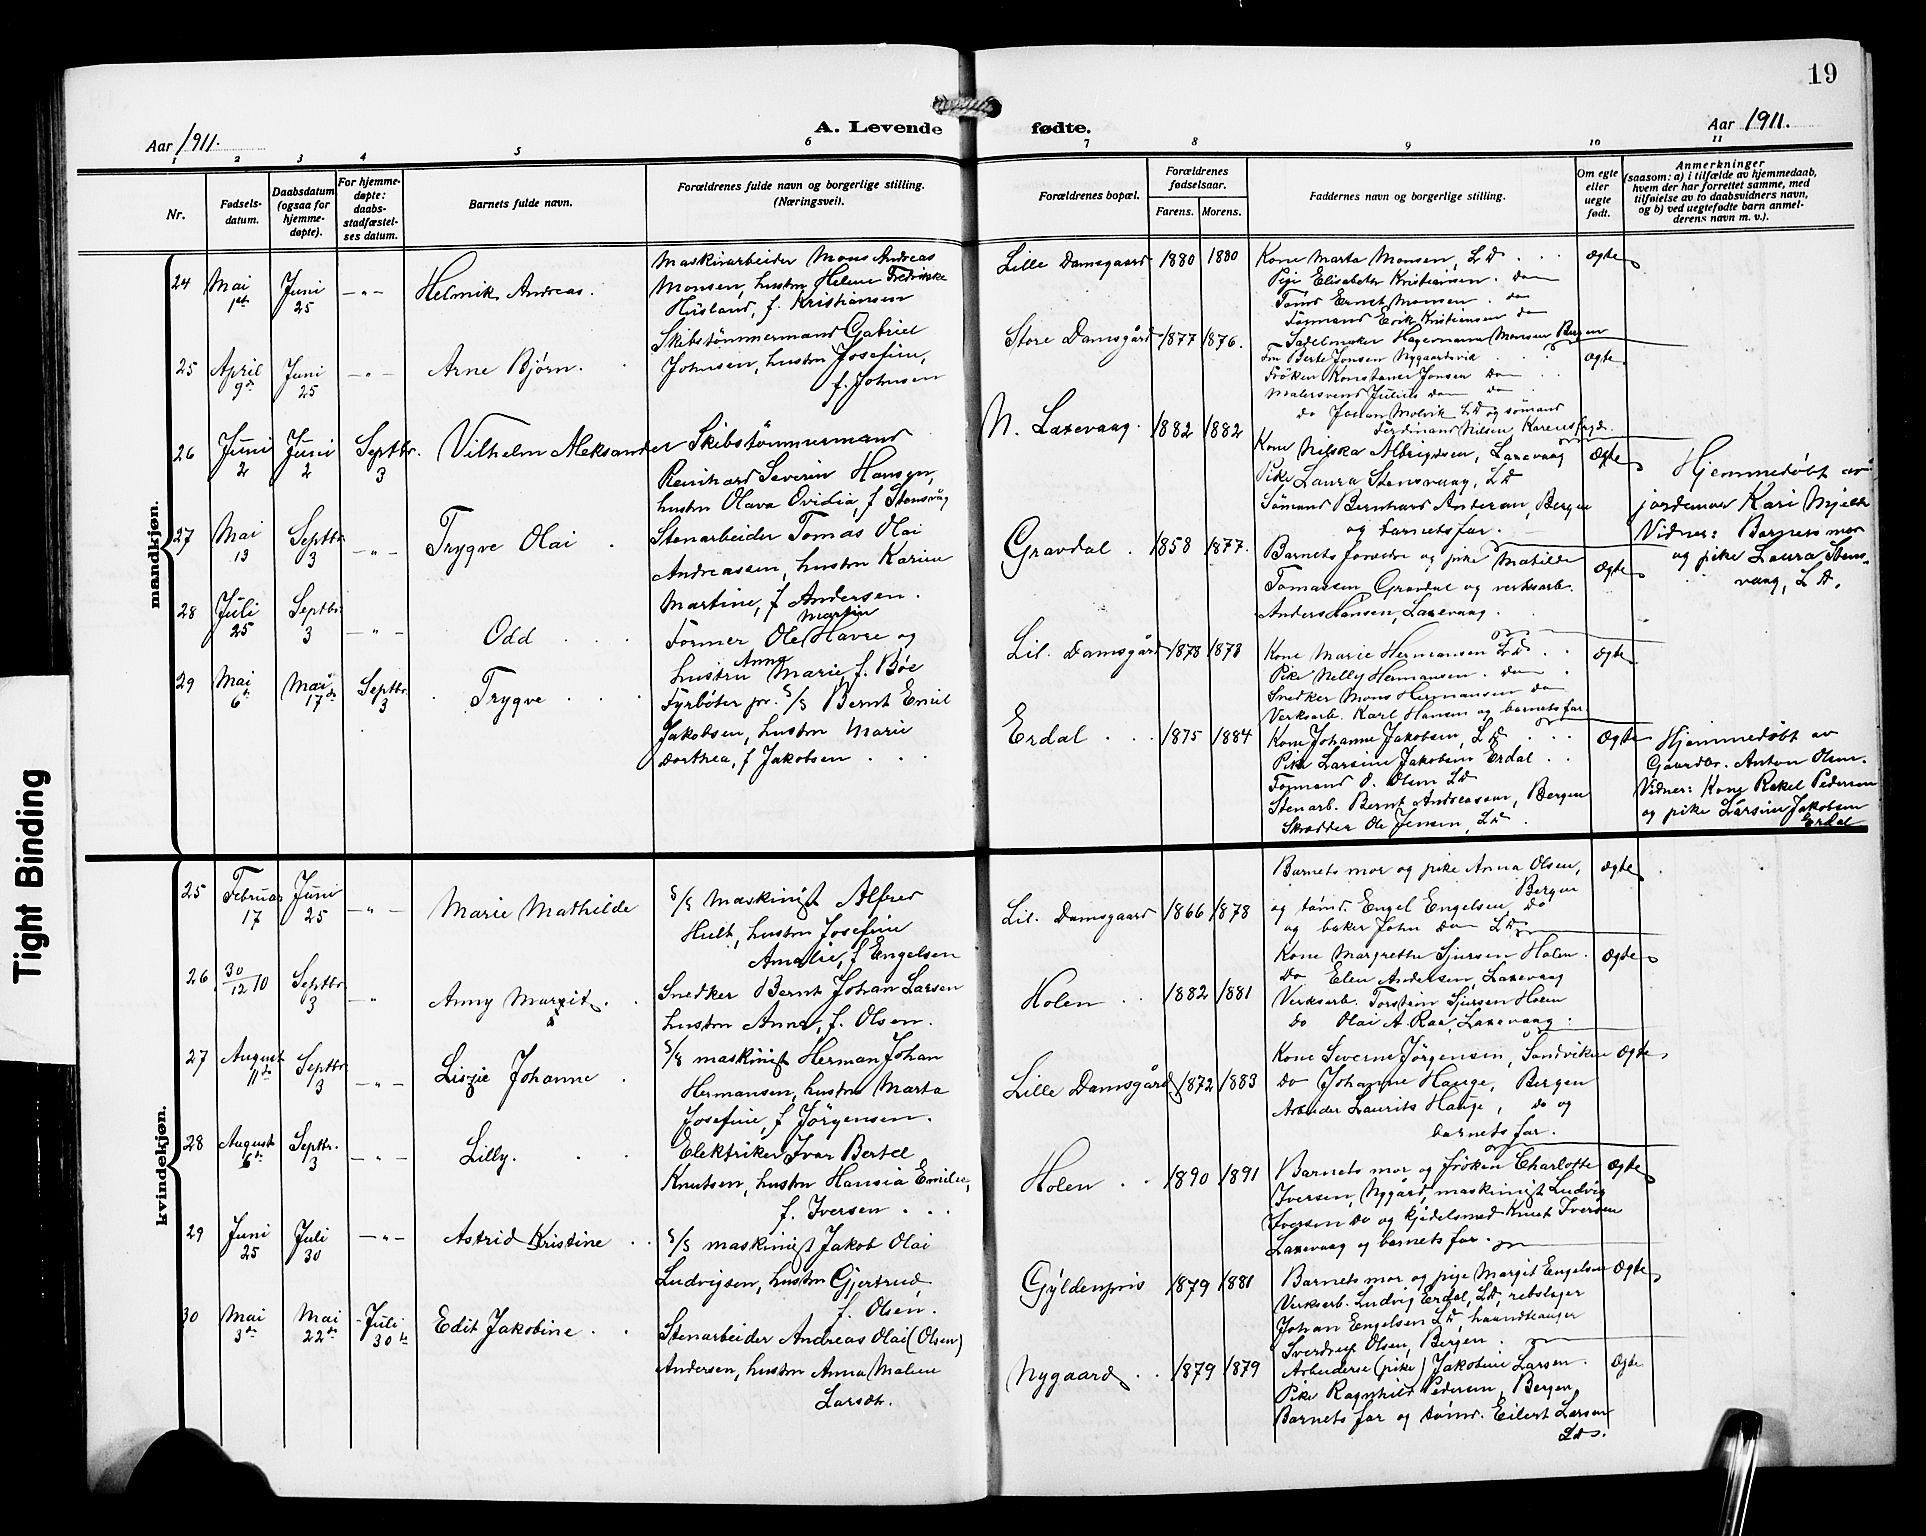 19
A. Levende fødte.
Aar 1911.
Aar 1911.
1 2 3 4 5 6 7 8 9 10 11
Nr.
Fødsels-
datum.
Daabsdatum
(ogsaa for
hjemme-
døpte).
For hjemme-
døpte:
daabs-
stadfæstel-
ses datum.
Barnets fulde navn.
Forældrenes fulde navn og borgerlige stilling.
(Næringsvei).
Forældrenes bopæl.
Forældrenes
fødselsaar.
Farens. Morens.
Faddernes navn og borgerlige stilling.
Om egte
eller
uegte
født.
Anmerkninger
(saasom: a) i tilfælde av hjemmedaab,
hvem der har forrettet samme, med
tilføielse av to daabsvidners navn,
og b) ved uegtefødte barn anmel-
derens navn m. v.).
mandkjøn.
24 Mai 1st Juni 25 —„— Helmik Andreas.
Maskinarbeider Mons Andreas
Monsen, hustru Helene Fredrikke
Husland, f. Kristiansen
Lille Damsgaard 1880 1880
Kone Marta Monsen, LD
Pige Elisabeth Kristiansen do
Tømd Ernst Monsen do
Formand Erik Kristiansen do
Sadelmaker Hagemann Monsen Bergen
Ægte
25 April 9de Juni 25 —„— Arne Bjørn.
Skibstømmermand Gabriel
Johnsen, hustru Josefine,
f. Johnsen
Store Damsgård 1877 1876.
Fru Berte Jonsen Nygaardsvik
Frøken Konstanse Jonsen do
Malersvend Julius do do
do Johan Molvik LD og sømand
Ferdinand Nilsen Karensfryd.
Ægte
26 Juni 2 Juni 2 Septbr. 3 Vilhelm Aleksander
Skibstømmermand
Reinhard Severin Hansen,
hustru Olava Ovidia, f Stensvåg
N. Laxevaag. 1882 1882
Kone Nilska Albrigtsen, Laxevaag
Pike Laura Stensvaag, LD
Sømand Bernhard Andersen, Bergen
og barnets far.
Ægte
Hjemmedøbt av
jordemor Kari Mjelde
Vidner: Barnets mor
og pike Laura Stens-
vaag, L D.
27 Mai 13 Septbr 3 —„— Trygve Olai
Stenarbeider Tomas Olai
Andreassen, hustru Karine
Martine, f Andersen.
Gravdal 1858 1877.
Barnets forældre og pike Matilde
Tomassen Gravdal og verksarb.
Anders Hansen, Laxevaag.
Ægte
28 Juli 25 Septbr 3 —„— Odd
Former Ole Martin Havre og
hustru Anna Marie, f. Bøe
Lil. Damsgård 1878 1878
Kone Marie Hermansen LD
Pike Nelly Hermansen do
Snedker Mons Hermansen do
Verksarb. Karl Hansen og barnets far.
Ægte
29 Mai 6te Mai 17de Septbr. 3 Trygve
Fyrbøter pr. S/S Bernt Emil
Jakobsen, hustru Marie
Dorthea, f Jakobsen
Erdal 1875 1884
Kone Johanne Jakobsen, LD
Pike Larsine Jakobsen Erdal
Formand O. Olsen LD
Stenarb. Bernt Andreassen, Bergen
Skrædder Ole Jensen, LD
Ægte
Hjemmedøbt av
Gaardbr. Anton Olsen.
Vidner: Kone Rakel Pedersen
og pike Larsine Jakobsen
Erdal
kvindekjøn.
25 Februar 17 Juni 25 —„— Marie Mathilde
S/S Maskinist Alfred
Hult, hustru Josefine
Amalie, f Engelsen
Lil. Damsgaard 1866 1878
Barnets mor og pike Anna Olsen,
Bergen
og tømd. Engel Engelsen do
og baker John do LD
Ægte
26 30/12 10 Septbr 3 —„ Anny Margit.
Snedker Bernt Johan Larsen
hustru Anna, f. Olsen.
Holen 1882 1881
Kone Margrethe Sjursen Holen.
do Elen Andersen, Laxevaag
Verksarb. Torstein Sjursen Holen
do Olai A. Raa, Laxevaag.
Ægte
27 August 11te Septbr 3 —„— Lizzie Johanne
S/S maskinist Herman Johan
Hermansen, hustru Marta
Josefine, f Jörgensen.
Lille Damsgård 1872 1883
Kone Severne Jörgensen, Sandviken
do Johanne Hauge, Bergen
Arbeider Laurits Hauge, do og
barnets far.
Ægte
28 August 6te Septbr. 3 —„— Lilly.
Elektriker Ivar Bertel
Knutsen, hustru Hansia Emilie,
f. Iversen
Holen 1890 1891
Barnets mor og frøken Charlotte
Iversen, Nygård, maskinist Ludvig
Iversen do og kjedelsmed Knut Iversen
Laxevaag og barnets far.
Ægte
29 Juni 25 Juli 30 —„— Astrid Kristine
S/S maskinist Jakob Olai
Ludvigsen, hustru Gjertrud,
f. Olsen.
Gyldenpris 1879 1881
Barnets mor og pige Margit Engelsen
Verksarb. Ludvig Erdal, LD, rebslager
Johan Engelsen LD, haandlanger
Sverdrup Olsen, Bergen.
Ægte
30 Mai 3de Mai 22de Juli 30te Edit Jakobine
Stenarbeider Andreas Olai (Olsen)
Andersen, hustru Anna Malene
Larsdtr.
Nygaard 1879 1879
Arbeiderse (pike) Jakobine Larsen.
Pike Ragnhild Pedersen, Bergen,
Barnets far og tømd. Eilert Larsen
LD.
Ægte
Tight Binding